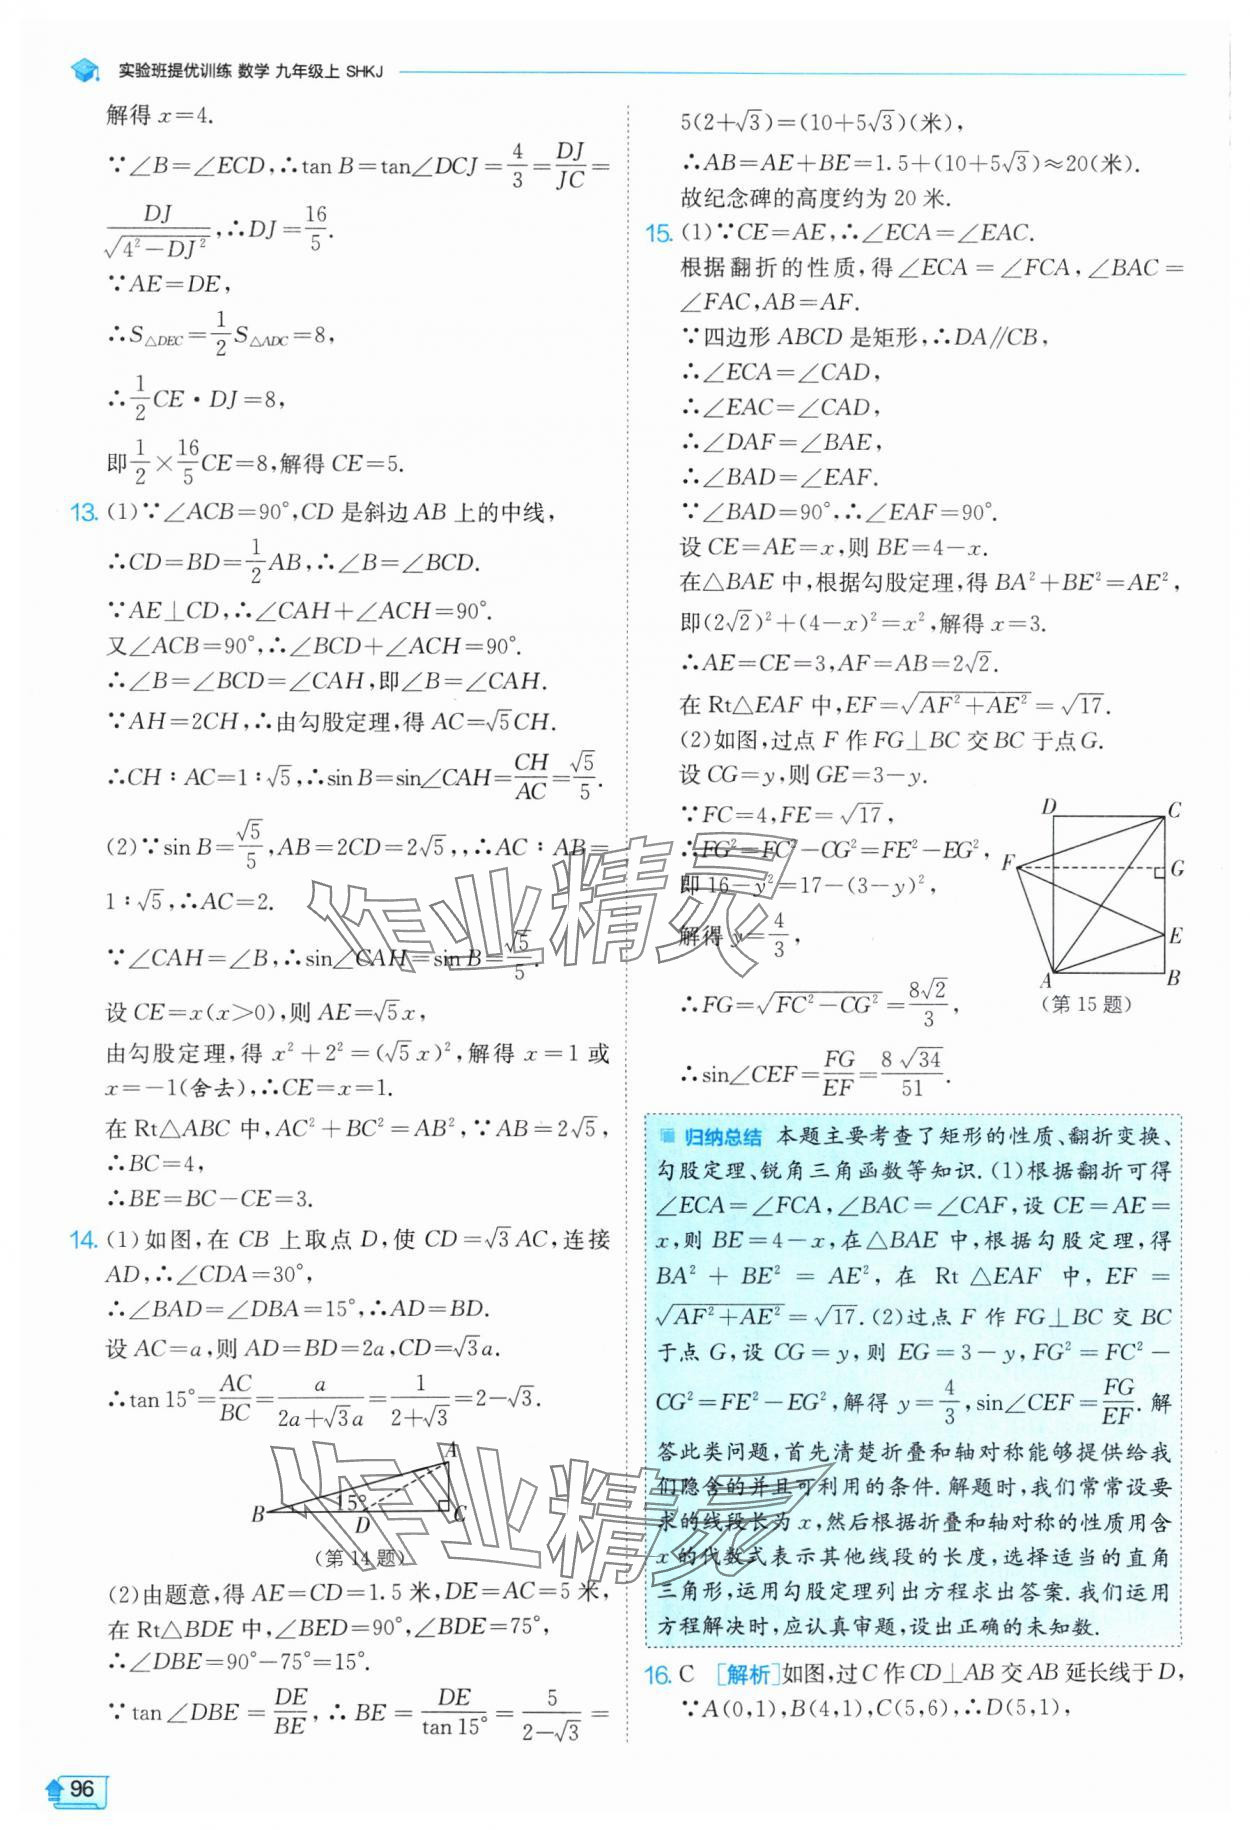 实验班提优训练 数学 九年级上 SHKJ
解得 x=4.
∵∠B=∠ECD,∴tan B=tan∠DCJ=4/3=DJ/JC=
DJ/√(4²-DJ²),∴DJ=16/5.
∵AE=DE,
∴S△DEC=1/2 S△ADC=8,
∴1/2 CE·DJ=8,
即1/2×16/5 CE=8,解得 CE=5.
13. (1)∵∠ACB=90°,CD 是斜边 AB 上的中线,
∴CD=BD=1/2 AB,∴∠B=∠BCD.
∵AE⊥CD,∴∠CAH+∠ACH=90°.
又∠ACB=90°,∴∠BCD+∠ACH=90°.
∴∠B=∠BCD=∠CAH,即∠B=∠CAH.
∵AH=2CH,∴由勾股定理,得 AC=√5CH.
∴CH∶AC=1∶√5,∴sin B=sin∠CAH=CH/AC=√5/5.
(2)∵sin B=√5/5,AB=2CD=2√5,,∴AC∶AB=
1∶√5,∴AC=2.
∵∠CAH=∠B,∴sin∠CAH=sin B=√5/5.
设 CE=x(x>0),则 AE=√5x,
由勾股定理,得 x²+2²=(√5x)²,解得 x=1 或
x=-1(舍去),∴CE=x=1.
在 Rt△ABC 中,AC²+BC²=AB²,∵AB=2√5,
∴BC=4,
∴BE=BC-CE=3.
14. (1)如图,在 CB 上取点 D,使 CD=√3AC,连接
AD,∴∠CDA=30°,
∴∠BAD=∠DBA=15°,∴AD=BD.
设 AC=a,则 AD=BD=2a,CD=√3a.
∴tan 15°=AC/BC=a/(2a+√3a)=1/(2+√3)=2-√3.
A
B
15°
D
C
(第 14 题)
(2)由题意,得 AE=CD=1.5 米,DE=AC=5 米,
在 Rt△BDE 中,∠BED=90°,∠BDE=75°,
∴∠DBE=90°-75°=15°.
∵tan∠DBE=DE/BE,∴BE=DE/tan 15°=5/(2-√3)=
5(2+√3)=(10+5√3)(米),
∴AB=AE+BE=1.5+(10+5√3)≈20(米).
故纪念碑的高度约为 20 米.
15. (1)∵CE=AE,∴∠ECA=∠EAC.
根据翻折的性质,得∠ECA=∠FCA,∠BAC=
∠FAC,AB=AF.
∵四边形 ABCD 是矩形,∴DA∥CB,
∴∠ECA=∠CAD,
∴∠EAC=∠CAD,
∴∠DAF=∠BAE,
∴∠BAD=∠EAF.
∵∠BAD=90°,∴∠EAF=90°.
设 CE=AE=x,则 BE=4-x.
在△BAE 中,根据勾股定理,得 BA²+BE²=AE²,
即(2√2)²+(4-x)²=x²,解得 x=3.
∴AE=CE=3,AF=AB=2√2.
在 Rt△EAF 中,EF=√(AF²+AE²)=√17.
(2)如图,过点 F 作 FG⊥BC 交 BC 于点 G.
设 CG=y,则 GE=3-y.
∵FC=4,FE=√17,
∴FG²=FC²-CG²=FE²-EG²,
即 16-y²=17-(3-y)²,
解得 y=4/3,
∴FG=√(FC²-CG²)=8√2/3,
∴sin∠CEF=FG/EF=8√34/51.
D
C
F
G
E
A
B
(第 15 题)
归纳总结 本题主要考查了矩形的性质、翻折变换、
勾股定理、锐角三角函数等知识.(1)根据翻折可得
∠ECA=∠FCA,∠BAC=∠CAF,设 CE=AE=
x,则 BE=4-x,在△BAE 中,根据勾股定理,得
BA²+BE²=AE²,在 Rt△EAF 中,EF=
√(AF²+AE²)=√17.(2)过点 F 作 FG⊥BC 交 BC
于点 G,设 CG=y,则 EG=3-y,FG²=FC²-
CG²=FE²-EG²,解得 y=4/3,sin∠CEF=FG/EF.解
答此类问题,首先清楚折叠和轴对称能够提供给我
们隐含的并且可利用的条件.解题时,我们常常设要
求的线段长为 x,然后根据折叠和轴对称的性质用含
x 的代数式表示其他线段的长度,选择适当的直角
三角形,运用勾股定理列出方程求出答案.我们运用
方程解决时,应认真审题,设出正确的未知数.
16. C [解析]如图,过 C 作 CD⊥AB 交 AB 延长线于 D,
∵A(0,1),B(4,1),C(5,6),∴D(5,1),
96
作业精灵
作业精灵